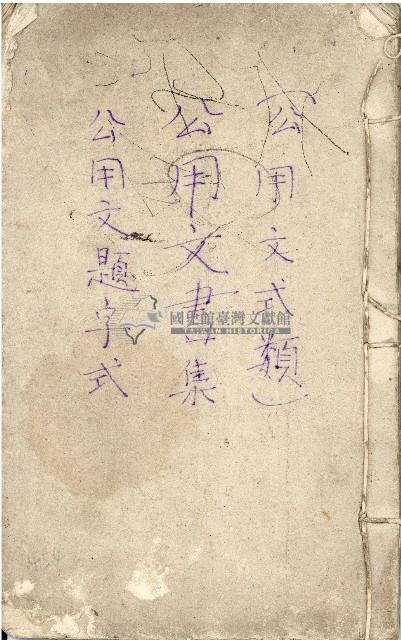 (公用文式類)
公用文書集
公用文題字式
國史館臺灣文獻館
TAIWAN HISTORICA